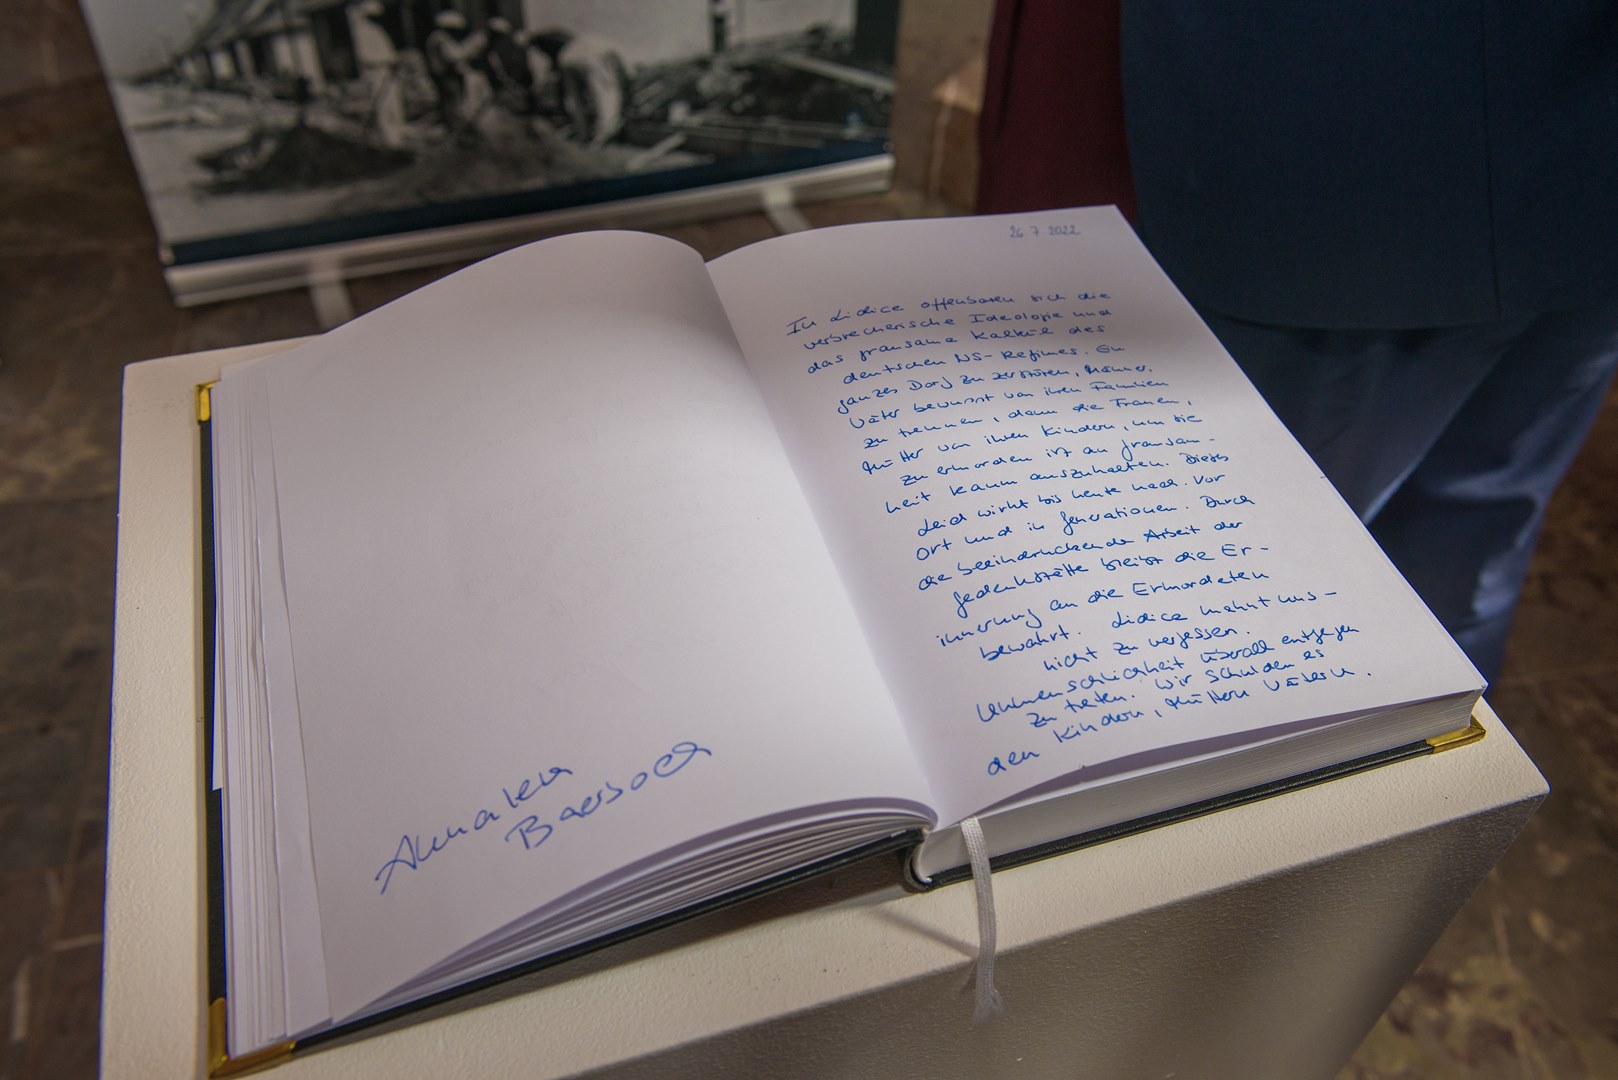 26 7 2022
In Lidice offenbaren sich die
verbrecherische Ideologie und
das grausame Kalkül des
deutschen NS-Regimes. Ein
ganzes Dorf zu zerstören, Männer,
Väter bewusst von ihren Familien
zu trennen, dann die Frauen,
Mütter von ihren Kindern, um sie
zu ermorden ist an Grausam-
keit kaum auszuhalten. Dieses
Leid wirkt bis heute nach. Vor
Ort und in Generationen. Durch
die beeindruckende Arbeit der
Gedenkstätte bleibt die Er-
innerung an die Ermordeten
bewahrt. Lidice mahnt uns -
nicht zu vergessen.
Unmenschlichkeit überall entgegen
zu treten. Wir schulden es
den Kindern, Müttern Vätern.
Annalena
Baerbock